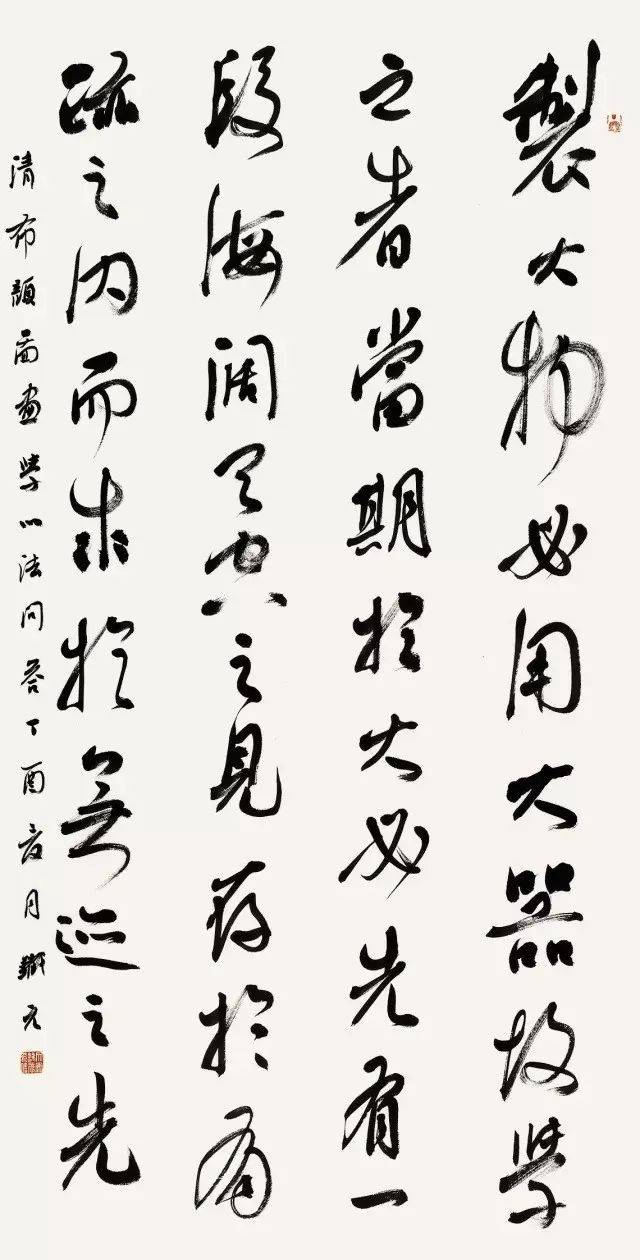 製大物必用大器故學
之者當期於大必先有一
段海闊天空之見存於有
跡之內而求於無迹之先
清布顏圖畫學心法問答丁酉夏月